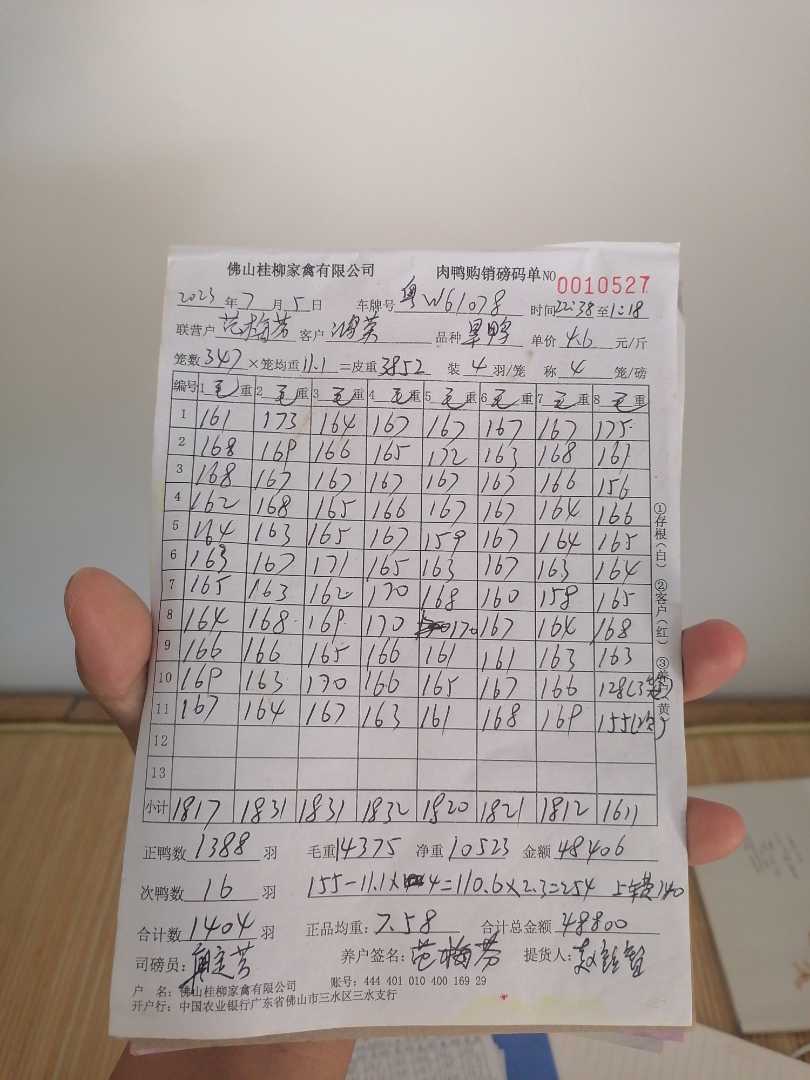 佛山桂柳家禽有限公司 肉鸭购销磅码单 NO 0010527
2023年7月5日 车牌号 粤W61078 时间22:38至1:18
联营户 范梅芳 客户 鸿英 品种 旱鸭 单价 4.6 元/斤
笼数 347 ×笼均重 11.1 =皮重 3852 装 4 羽/笼 称 4 笼/磅
编号 1 毛重 2 毛重 3 毛重 4 毛重 5 毛重 6 毛重 7 毛重 8 毛重
1 161 173 164 167 167 167 167 175
2 168 169 166 165 172 163 168 167
3 168 167 167 167 167 167 166 156
4 162 168 165 166 167 167 164 166
5 164 163 165 167 159 167 164 165
6 163 167 171 165 163 167 163 164
7 165 163 162 170 168 160 158 165
8 164 168 169 170 170 167 164 168
9 166 166 165 166 161 161 163 163
10 169 163 170 166 165 167 166 128(3笼)
11 167 164 167 163 161 168 169 155(次)
12
13
小计 1817 1831 1831 1832 1820 1821 1812 1611
正鸭数 1388 羽 毛重 14375 净重 10523 金额 48406
次鸭数 16 羽 155-11.1×4=110.6×2.3=254 140
合计数 1404 羽 正品均重: 7.58 合计总金额 48800
司磅员: 养户签名: 范梅芬 提货人:
户 名: 佛山桂柳家禽有限公司 账号: 444 401 010 400 169 29
开户行: 中国农业银行广东省佛山市三水区三水支行
①存根(白) ②客户(红) ③ 黄